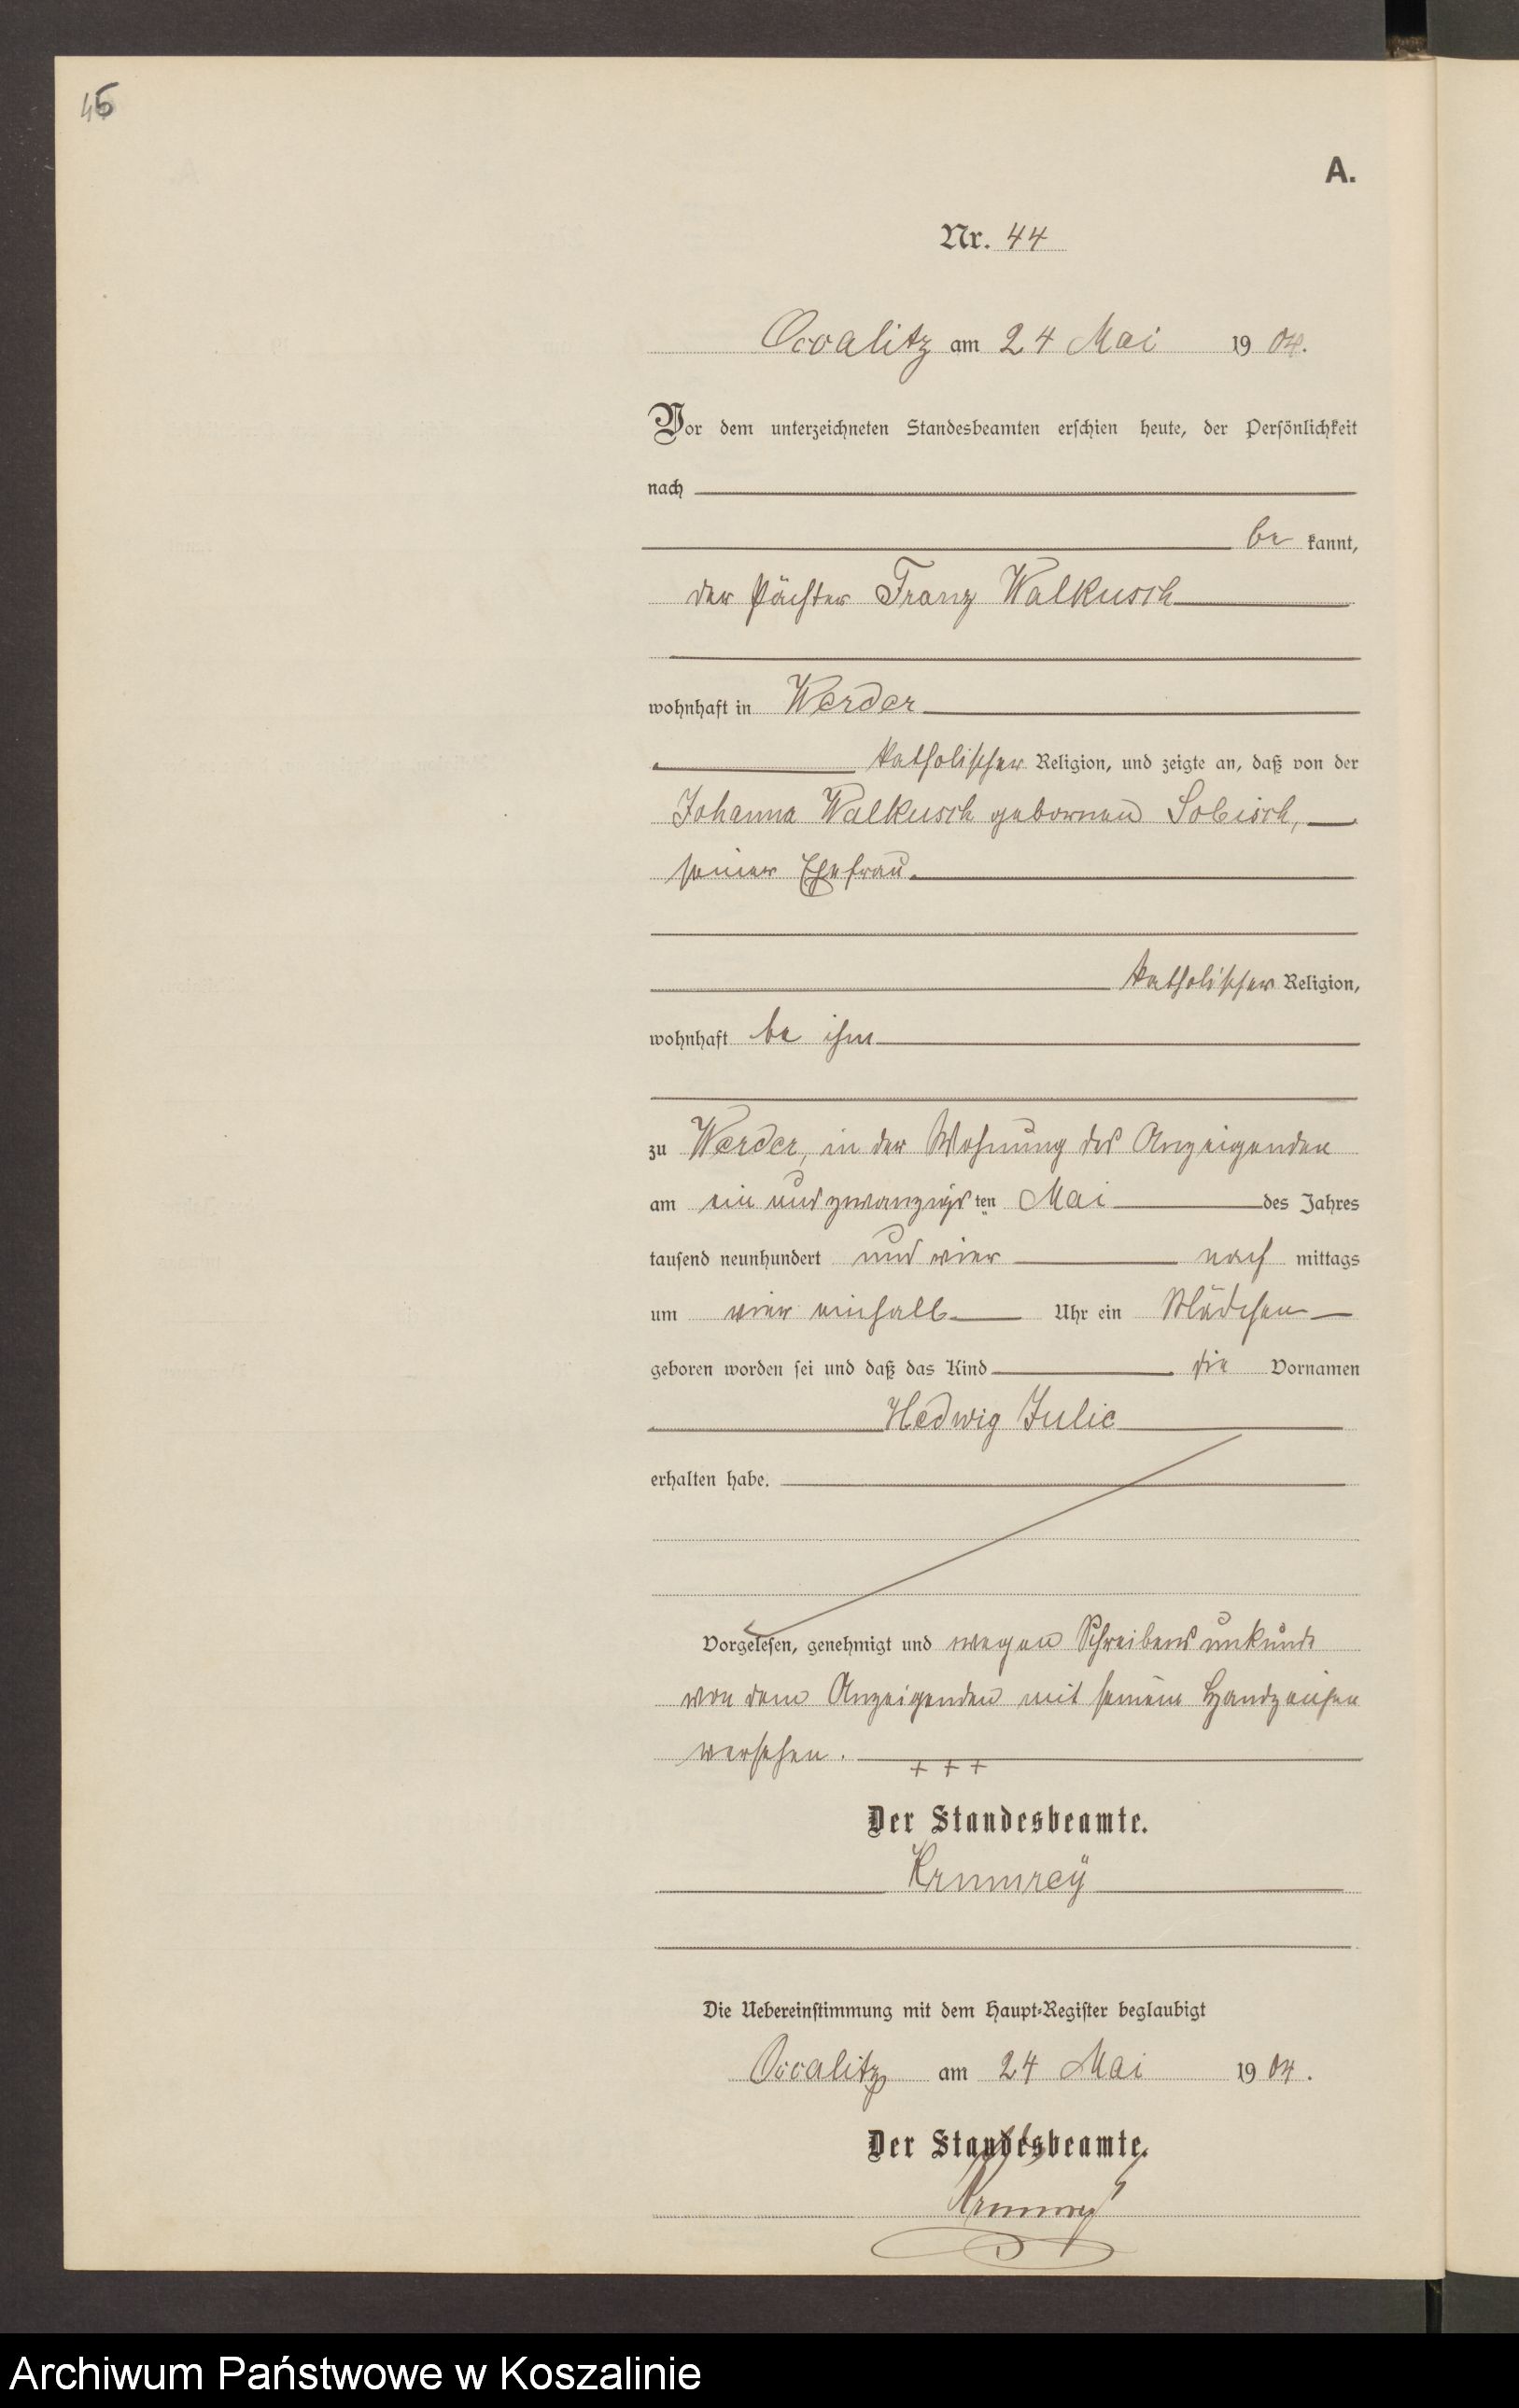 45
A.
Nr. 44
Occalitz am 24 Mai 1904.
Vor dem unterzeichneten Standesbeamten erschien heute, der Persönlichkeit
nach
be kannt,
der Pächter Franz Walkusch
wohnhaft in Werder
katholischer Religion, und zeigte an, daß von der
Johanna Walkusch gebornen Sobisch,
seiner Ehefrau
katholischer Religion,
wohnhaft bei ihm
zu Werder, in der Wohnung des Anzeigenden
am ein und zwanzigsten Mai des Jahres
tausend neunhundert und vier nach mittags
um vier einhalb Uhr ein Mädchen
geboren worden sei und daß das Kind die Vornamen
Hedwig Julie
erhalten habe.
Vorgelesen, genehmigt und wegen Schreibensunkunde
von dem Anzeigenden mit seinem Handzeichen
versehen.
+ + +
Der Standesbeamte.
Krumrey
Die Uebereinstimmung mit dem Haupt-Register beglaubigt
Occalitz am 24 Mai 1904.
Der Standesbeamte.
Krumrey
Archiwum Państwowe w Koszalinie